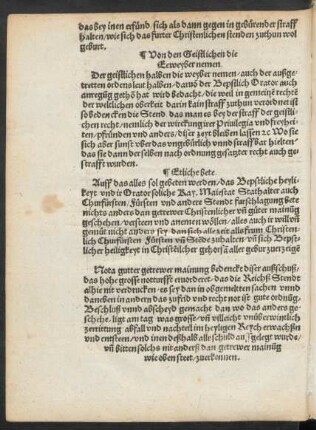 das bey inen erfünd / sich als dann gegen in gebürender straff
halten / wie sich das frũmer Christenlichen stenden zuthun wol
gebürt.
¶ Von den Geistlichen die
Eeweyber nemen.
Der geistlichen halben die weyber nemen / auch der außge-
tretten ordens leut halben / darvõ der Bepstlich Orator auch
anregũg gethõ hat wird bedacht / die weil in gemeinẽ rechtẽ
der weltlichen oberkeit darin kain straff zuthun verordnet ist
so bedencken die Stend. das man es bey der straff der geistli-
chen recht / nemlich die wirckung irer Priuilegia vnd freyhei-
ten / pfründen vnd anders / diser zeyt bleiben lassen ꝛc. Wo sie
sich aber sunst vber das vngebürlich vnnd straffbar hielten /
das sie dann derselben nach ordnung gesatzter recht auch ge-
strafft wurden.
¶ Etliche bete
Auff das alles sol gebeten werden / das Bepstliche heyli-
keyt vnd ir Orator so liche Kay. Maiestat Stathalter auch
Churfürsten Fürsten vnd andere Stende fürschlagung bete
nichts anders dann getrewer Christenlicher vñ gůter mainũg
geschehen / versteen vnd annemen wöllen / alles auch in willẽ vñ
gemüt nicht anders sey dan sich alle zeit alls frum Christen-
lich Churfürsten Fürsten vñ Stẽde zuhalten / vñ sich Bepst-
licher heiligkeyt in Christlicher gehorsã aller gebür zuerzeigẽ
Nota gutter getrewer mainung bedencket diser ausschuß /
das die hohe grosse notturfft erforderet / das die Reichß Stende
alhie nit verdrucken / es sey dan in obgemelten sachen vnnd
daneben in andern das zufrid vnd recht not ist gute ordnũg /
Beschluß vnnd abscheyd gemacht dan wo das anders ge-
schehe / ligt am tag was grosse / vñ villeicht vnüberwintlich
zerrittung abfall vnd nachteil im heyligen Reych erwachßen
vnd entsteen / vnd inen deßhalb alle schuld auffgelegt wurde /
vñ bitten solchs nit anderß dan getrewer mainũg
wie oben steet / zuerkennen.